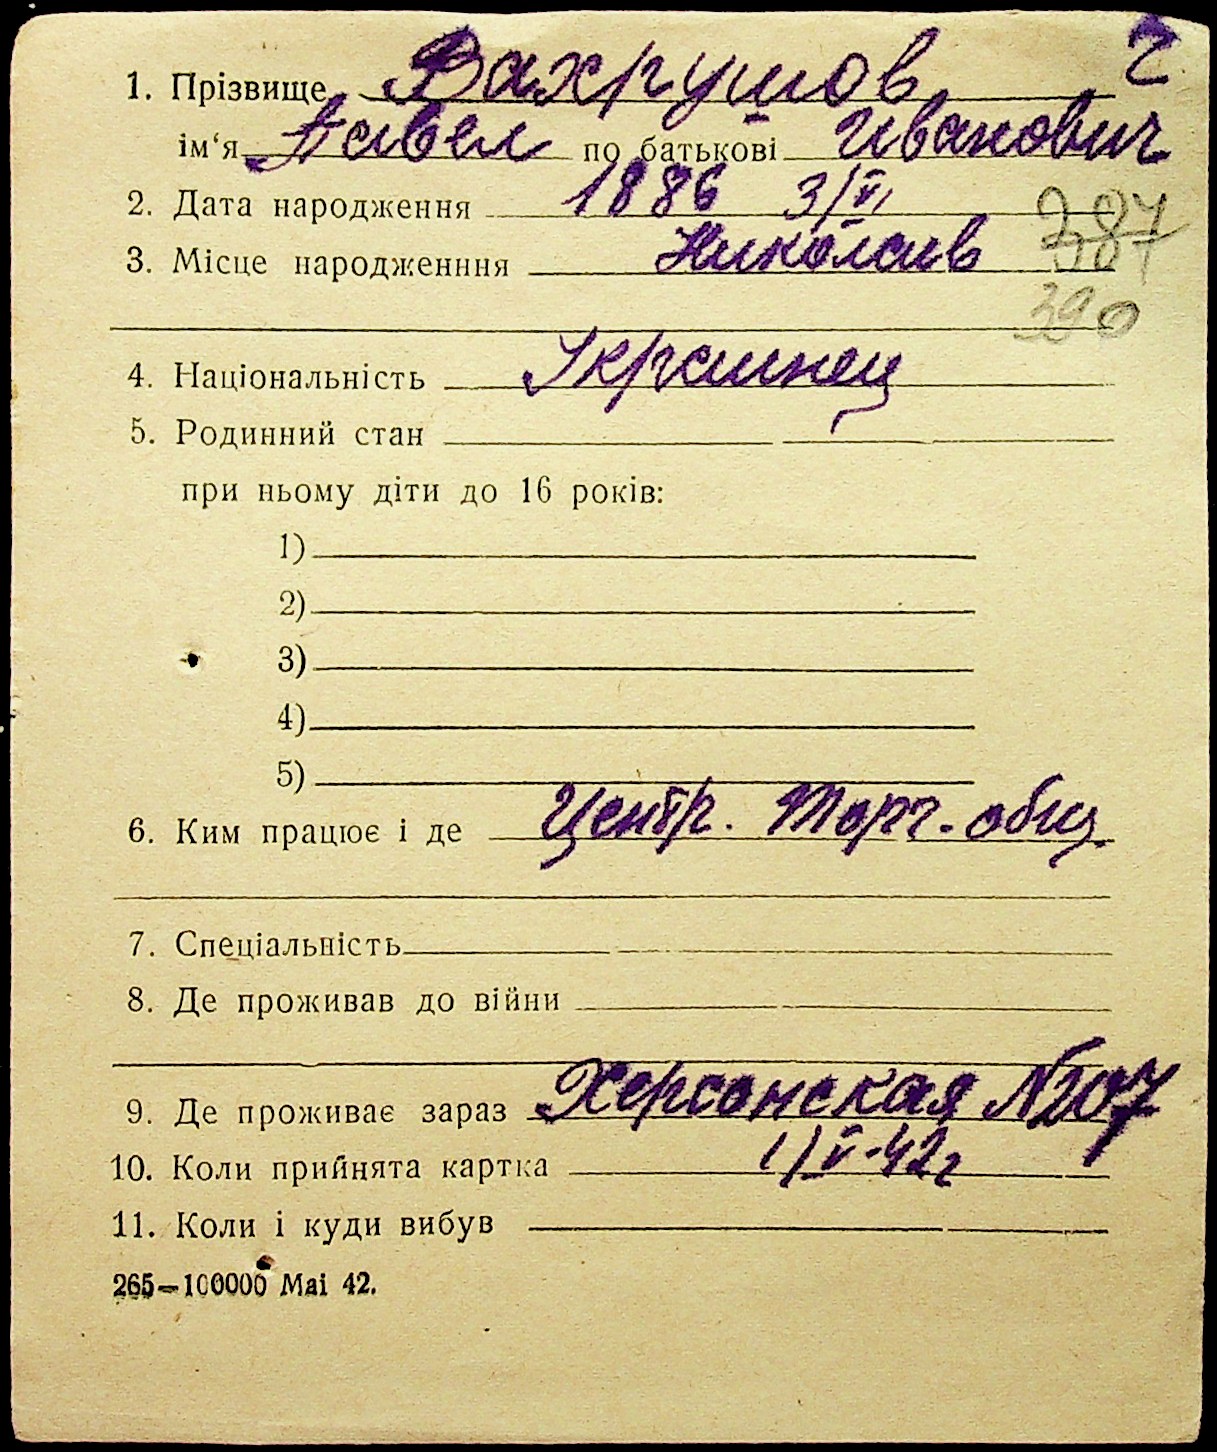 2
1. Прізвище Вахрушов
ім‘я Павел по батькові Иванович
2. Дата народження 1886 3/VI
3. Місце народженння Николаив
387
390
4. Національність Украинец
5. Родинний стан
при ньому діти до 16 років:
1)
2)
3)
4)
5)
6. Ким працює і де Центр. Торг. общ.
7. Спеціальність
8. Де проживав до війни
9. Де проживає зараз Херсонская №207
10. Коли прийнята картка 1/V-42г
11. Коли і куди вибув
265–100000 Mai 42.